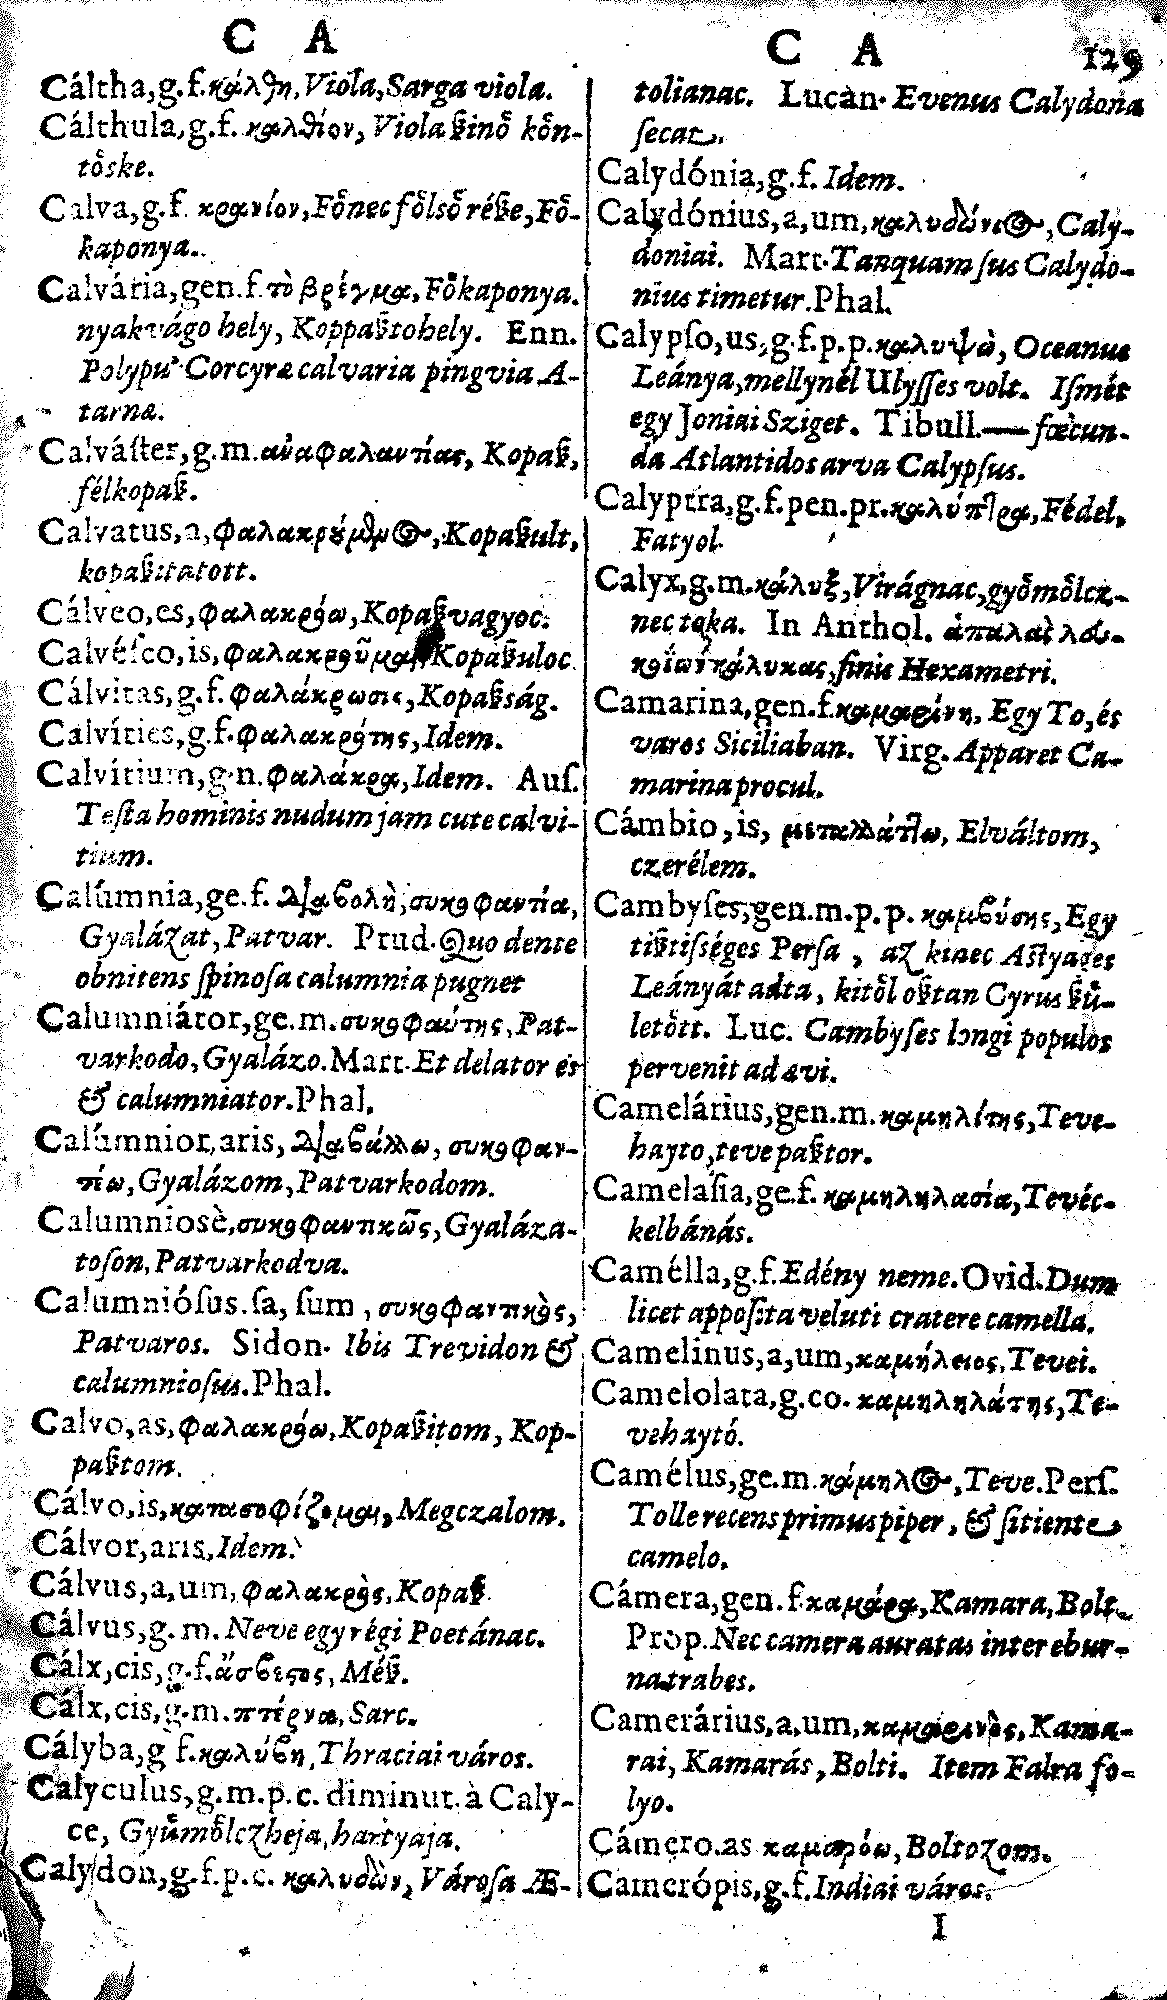 C A
Cáltha,g.f.κάλθη,Viola,Sarga viola.
Cálthula,g.f. καλθίον, Viola ßinő kőn-
tőske.
Calva,g.f. κρανίον,Főnec főlső réße,Fő-
kaponya.
Calvária,gen.f.τὸ βρέγμα,Főkaponya.
nyakvágo hely, Koppaßtohely. Enn.
Polypu' Corcyræ calvaria pingvia A-
tarnæ.
Calváſter,g.m.ἀναφαλαντίας, Kopaß,
félkopaß.
Calvatus,a,φαλακρούμενος,Kopaßult,
kopaßitatott.
Cálveo,es,φαλακρόω,Kopaß vagyoc.
Calvéſco,is,φαλακροῦμαι,Kopaßuloc
Cálvitas,g.f.φαλάκρωσις,Kopaßság.
Calvíties,g.f.φαλακρότης,Idem.
Calvítium,g.n.φαλάκρα,Idem. Auſ.
Teſta hominis nudum jam cute calvi-
tium.
Calúmnia,ge.f. διαβολὴ,συκοφαντία,
Gyalázat,Patvar. Prud.Quo dente
obnitens ſpinoſa calumnia pugnet
Calumniátor,ge.m.συκοφαύτης,Pat-
varkodo,Gyalázo.Mart.Et delator es
& calumniator.Phal.
Calúmnior,aris, διαβάλλω, συκοφαν-
τέω,Gyalázom,Patvarkodom.
Calumniosè,συκοφαντικῶς,Gyaláza-
toſon,Patvarkodva.
Calumnióſus.ſa, ſum, συκοφαντικὸς,
Patvaros. Sidon. Ibis Trevidon &
calumnioſus.Phal.
Calvo,as,φαλακρόω,Kopaßitom, Kop-
paßtom.
Cálvo,is,κατασοφίζομαι,Megczalom.
Cálvor,aris,Idem.
Cálvus,a,um,φαλακρὸς,Kopaß
Cálvus,g.m.Neve egy régi Poetánac.
Cálx,cis,g.f.ἄσβεςος,Méß.
Cálx,cis,g.m.πτέρνα,Sarc.
Cályba,g f.καλύβη,Thraciai város.
Calyculus,g.m.p.c. diminut.à Caly-
ce, Gyűmőlczheja,hartyaja.
Calydon,g.f.p.c. καλυδὼν, Városa Æ-
C A 129
tolianac. Lucan. Evenus Calydona
ſecat.
Calydónia,g.f.Idem.
Calydónius,a,um,καλυδώνιος,Caly-
doniai. Mart.Tanquam ſus Calydo-
nius timetur.Phal.
Calypſo,us,g.f.p.p.καλυψὼ, Oceanus
Leánya,mellynél Ulyſſes volt. Iſmét
egy Joniai Sziget. Tibull.—fœcun-
da Atlantidos arva Calypſus.
Calyptra,g.f.pen.pr.καλύπτρα,Fédel,
Fatyol
Calyx,g.m.κάλυξ,Virágnac,győmőlcz-
nec toka. In Anthol. ἁπαλαὶ
κάλυκας,finis Hexametri.
Camarina,gen.f.καμαρίνη, Egy To,és
varos Siciliaban. Virg.Apparet Ca-
marina procul.
Cámbio,is, μεταλλάττω, Elváltom,
czerélem.
Cambyſes,gen.m.p.p. καμβύσης,Egy
tißtiſséges Perſa, az kinec Aſtyages
Leányát adta, kitől oßtan Cyrus ßű-
letőtt. Luc. Cambyſes longi populos
pervenit ad ævi.
Camelárius,gen.m.καμηλίτης,Teve-
hayto,tevepaßtor.
Camelaſia,ge.f.καμηληλασία,Tevéc-
kelbánás.
Camélla,g.f.Edény neme.Ovid.Dum
licet appoſita veluti cratere camella.
Camelinus,a,um,καμήλειος,Tevei.
Camelolata,g.co. καμηληλάτης,Te-
vehaytó.
Camélus,ge.m.κάμηλος,Teve.Perſ.
Tolle recens primus piper, & ſitiente
camelo.
Cámera,gen.f.καμάρα,Kamara,Bolt,
Prop.Nec camera auratas inter ebur-
na trabes.
Camerárius,a,um,καμαρινὸς,Kama-
rai, Kamarás,Bolti. Item Falra fo-
lyo.
Cámero.as καμαρόω,Boltozom.
Camerópis,g.f.Indiai város.
I